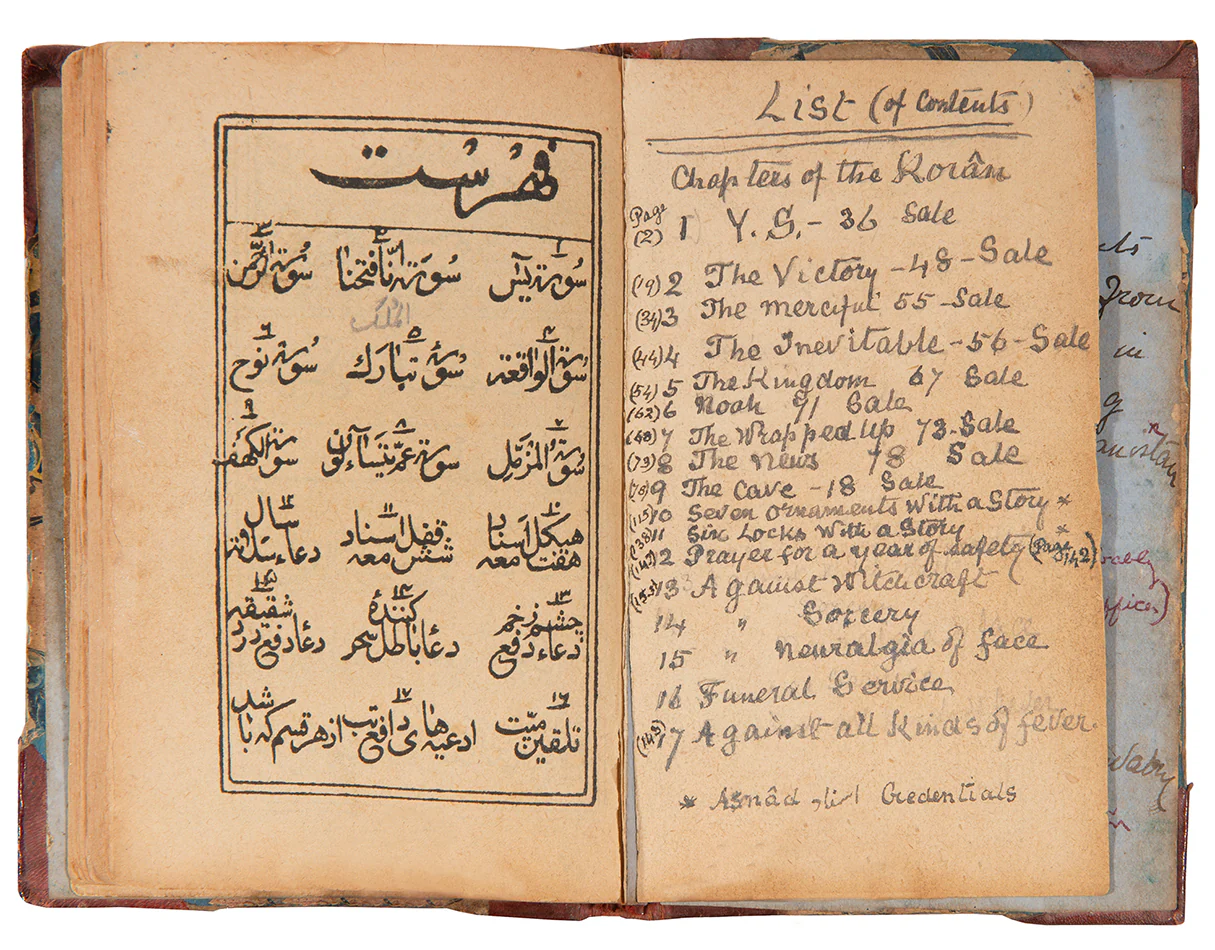 فهرست
۱ ۲ ۳
سُورة یٰسٓ سُورة اِنّا فتحنا سُورة الرَّحمن
الملک
۴ ۵ ۶
سُورة الواقعة سُورة تبارک سُورة نوح
۷ ۸ ۹
سُورة المزّمّل سورة عمّ یتساءلون سورة الکهف
۱۰ ۱۱ ۱۲
هیکل اسناد قفل اسناد سال
هفت معه شش معه دعاء
۱۳ ۱۴ ۱۵
چشم زخم کنندهٔ شقیقه
دعاء دفع دعا باطل سحر دعا دفع درد
۱۶ ۱۷
تلقین میّت ادعیه های دافع تب از هر قسم که باشد
List (of Contents)
Chapters of the Korân
Page
(2) 1 Y. S. - 36 Sale
(19) 2 The Victory - 48 - Sale
(34) 3 The merciful 55 - Sale
(44) 4 The Inevitable - 56 - Sale
(54) 5 The Kingdom 67 Sale
(62) 6 Noah 71 Sale
(68) 7 The Wrapped Up 73 - Sale
(73) 8 The News 78 Sale
9 The Cave - 18 Sale
(115) 10 Seven ornaments With a Story *
(138) 11 Six Locks With a Story *
(142) 12 Prayer for a year of safety (Page 142)
(153) 13 Against Witchcraft
14 " Sorcery
15 " Neuralgia of face
16 Funeral Service
17 Against all Kinds of fever.
* Asnâd اسناد Credentials
from
in